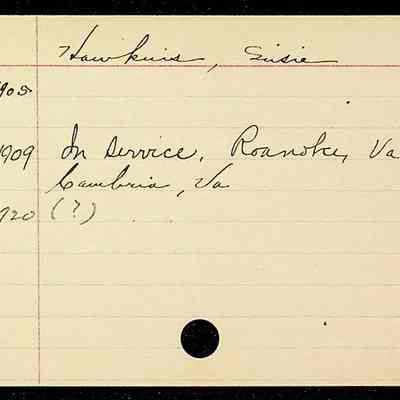 Hawkins, Susie
1905
1909 In service, Roanoke, Va
Cambria, Va
1920 (?)